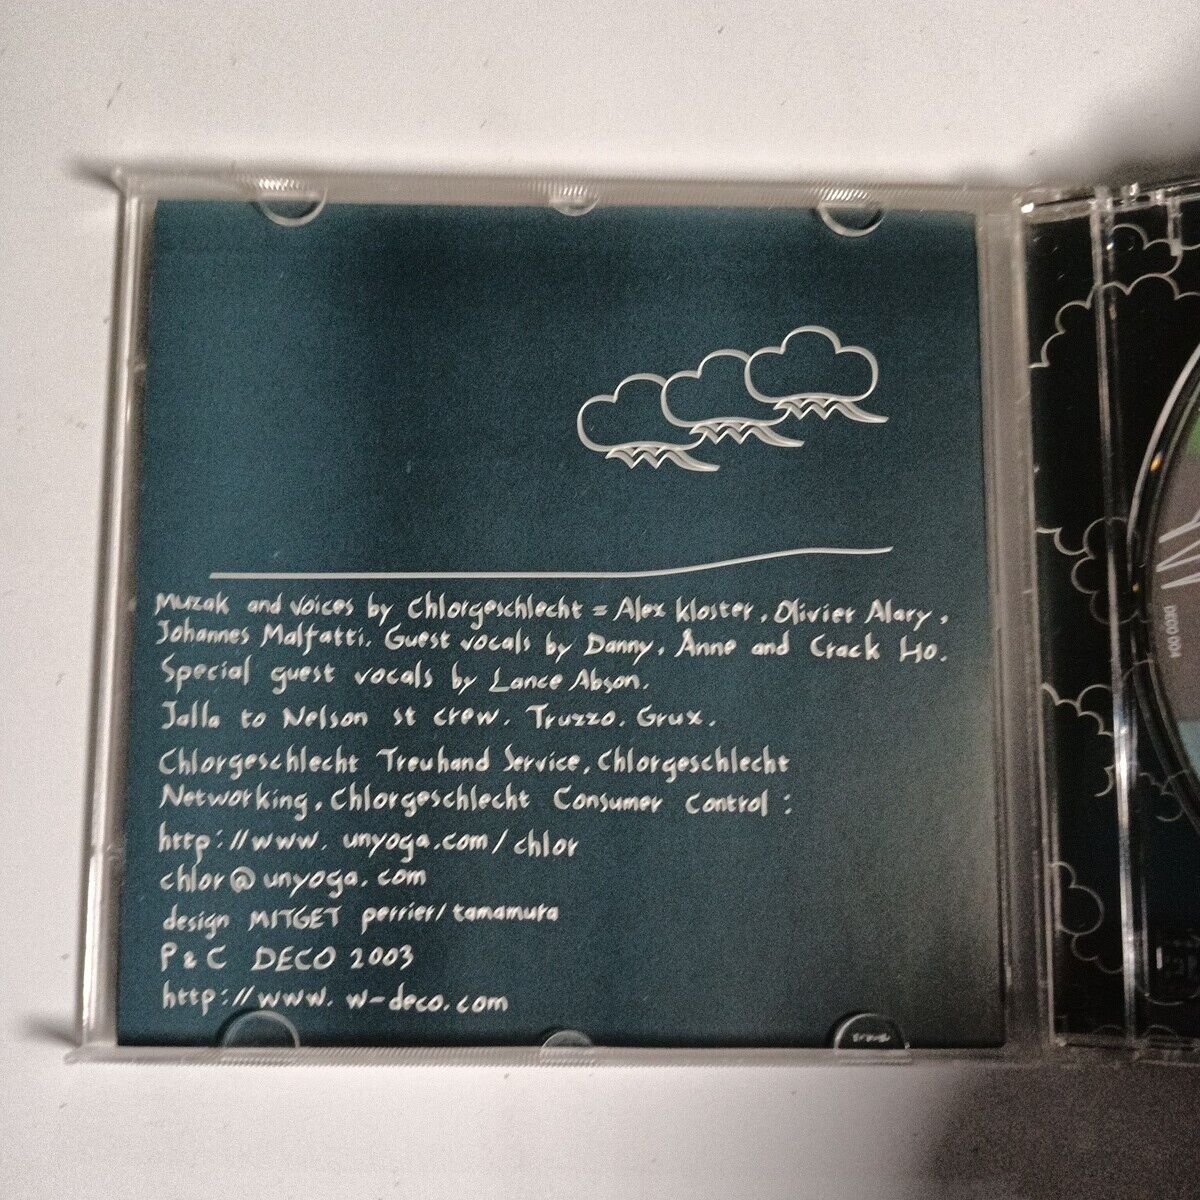 Muzak and voices by Chlorgeschlecht = Alex Kloster, Olivier Alary,
Johannes Malfatti. Guest vocals by Danny, Anne and Crack Ho.
Special guest vocals by Lance Abson.
Jalla to Nelson st crew, Truzzo, Grux.
Chlorgeschlecht Treuhand Service, Chlorgeschlecht
Networking, Chlorgeschlecht Consumer Control :
http://www. unyoga.com/chlor
chlor@unyoga.com
design MITGET perrier/tamamura
P & C DECO 2003
http://www. w-deco.com